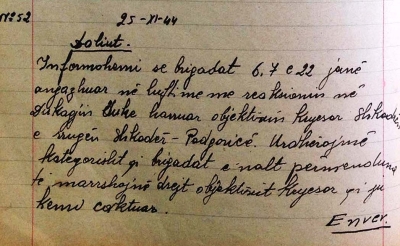 Nº 52
25-XI-44
Aliut.
Informohemi se brigadat 6, 7 e 22 janë
angazhuar në luftime me reaksionin në
Dukagjin duke harruar objektivin kryesor Shkodrën
e rrugën Shkodër-Podgoricë. Urdhërojmë
kategorisht qi brigadat e nalt permenduna
të marshojnë drejt objektivit kryesor qi ju
kemi caktuar.
Enver.